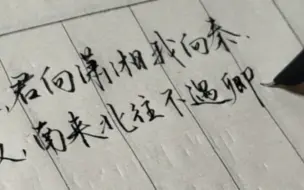 君向潇湘我向秦.
又南来北往不遇卿